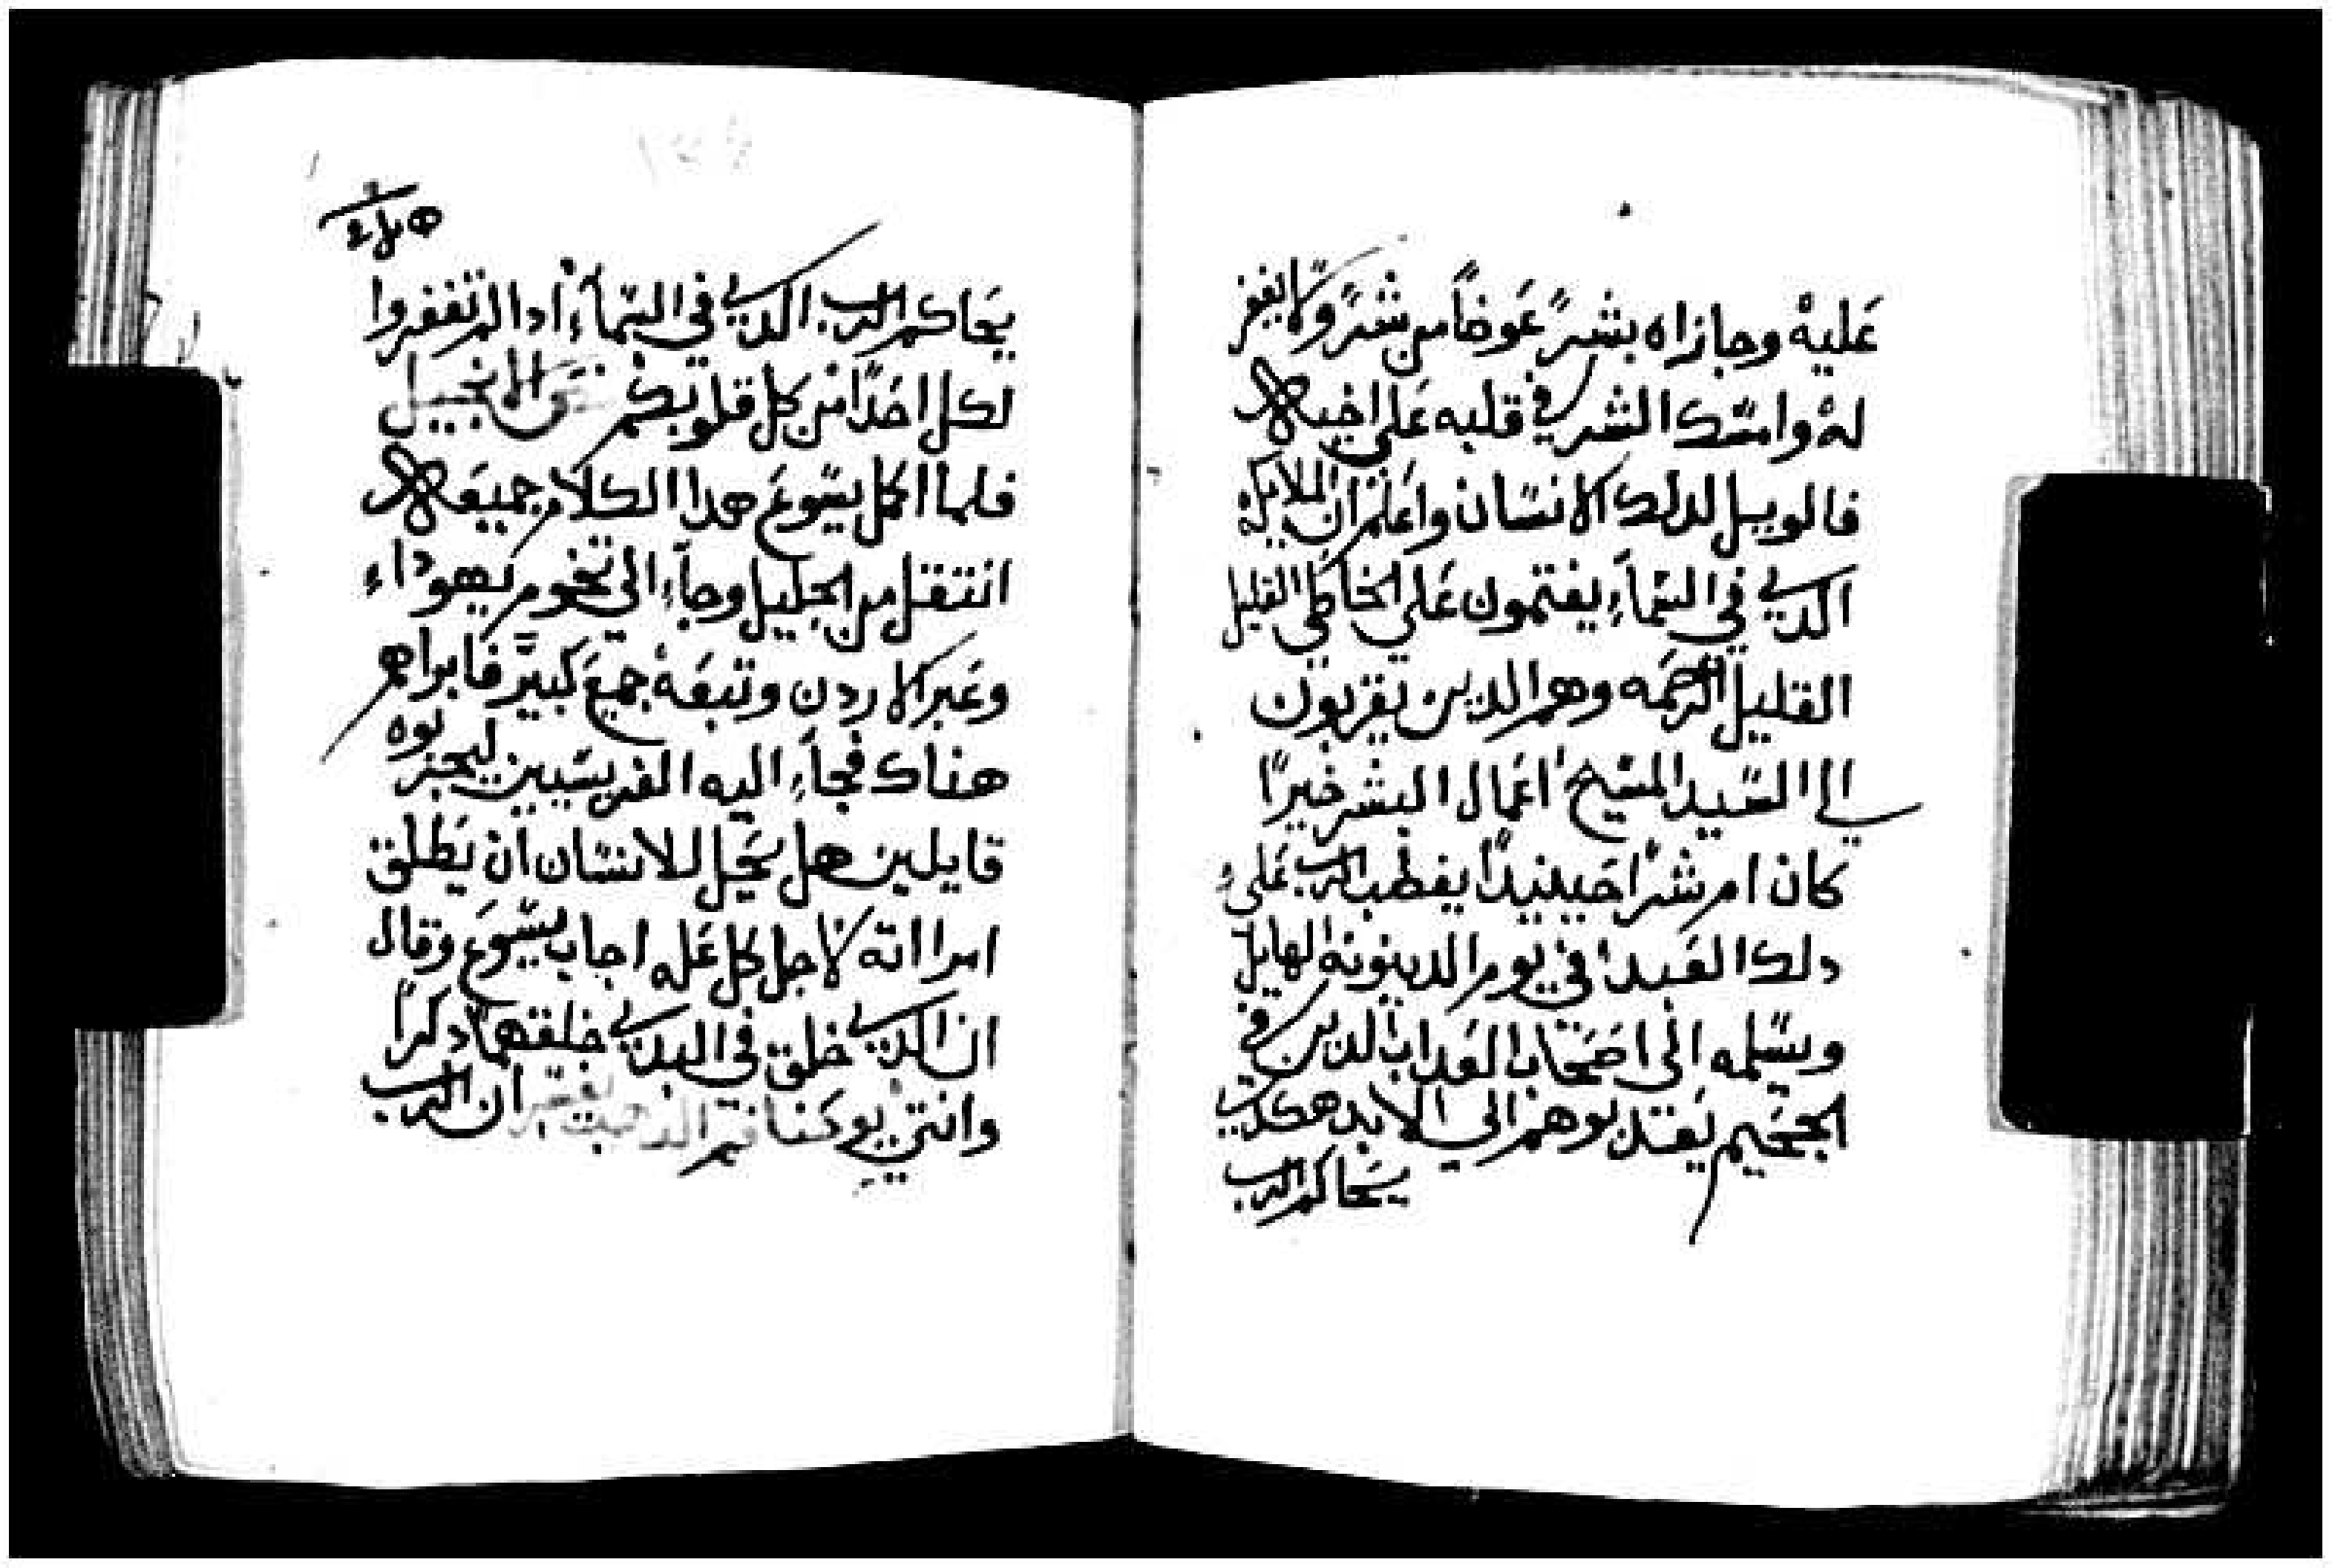 عَليهْ وجازاه بشرً عَوضاً من شرً ولا يغفر
لهْ وامسَك الشر في قلبه عَلي اخيه
فالويل لدلك الانسَان واعَلم ان الملايكه
الدي في السَماَء يغتمون عَلي الخاطي القليل
القليل الرحَمه وهم الدين يقربون
الي السَيد المسَيح اعَمال البشر خيرًا
كان ام شرًا حَينيدًا يغضب الرب عَلي
دلك العَبد في يوم الدينونه الهايل
ويسَلمه الي اصَحَاب العَداب الدين في
الجحَيم يعَدبوهم الي الابد هكدي
يحَاكم الرب
يحَاكم الرب الدي في السَماَء ادا لم تغفروا
لكل احَدًا من كل قلوبكم الانجيل
فلما اكمل يسَوع هدا الكلام جميعَه
انتقل من الجليل وجاَء الي تخوم يهوداء
وعَبر الاردن وتبعَهْ جمعَ كبير فابراهم
هناك فجاَء اليه الفريسَيين ليجربوه
قايلين هل يحَل للانسَان ان يَطلق
امراته لاجل كل عَله اجاب يسَوع وقال
ان الدي خلق في البدي خلقهما دكراً
وانتي ان الرب